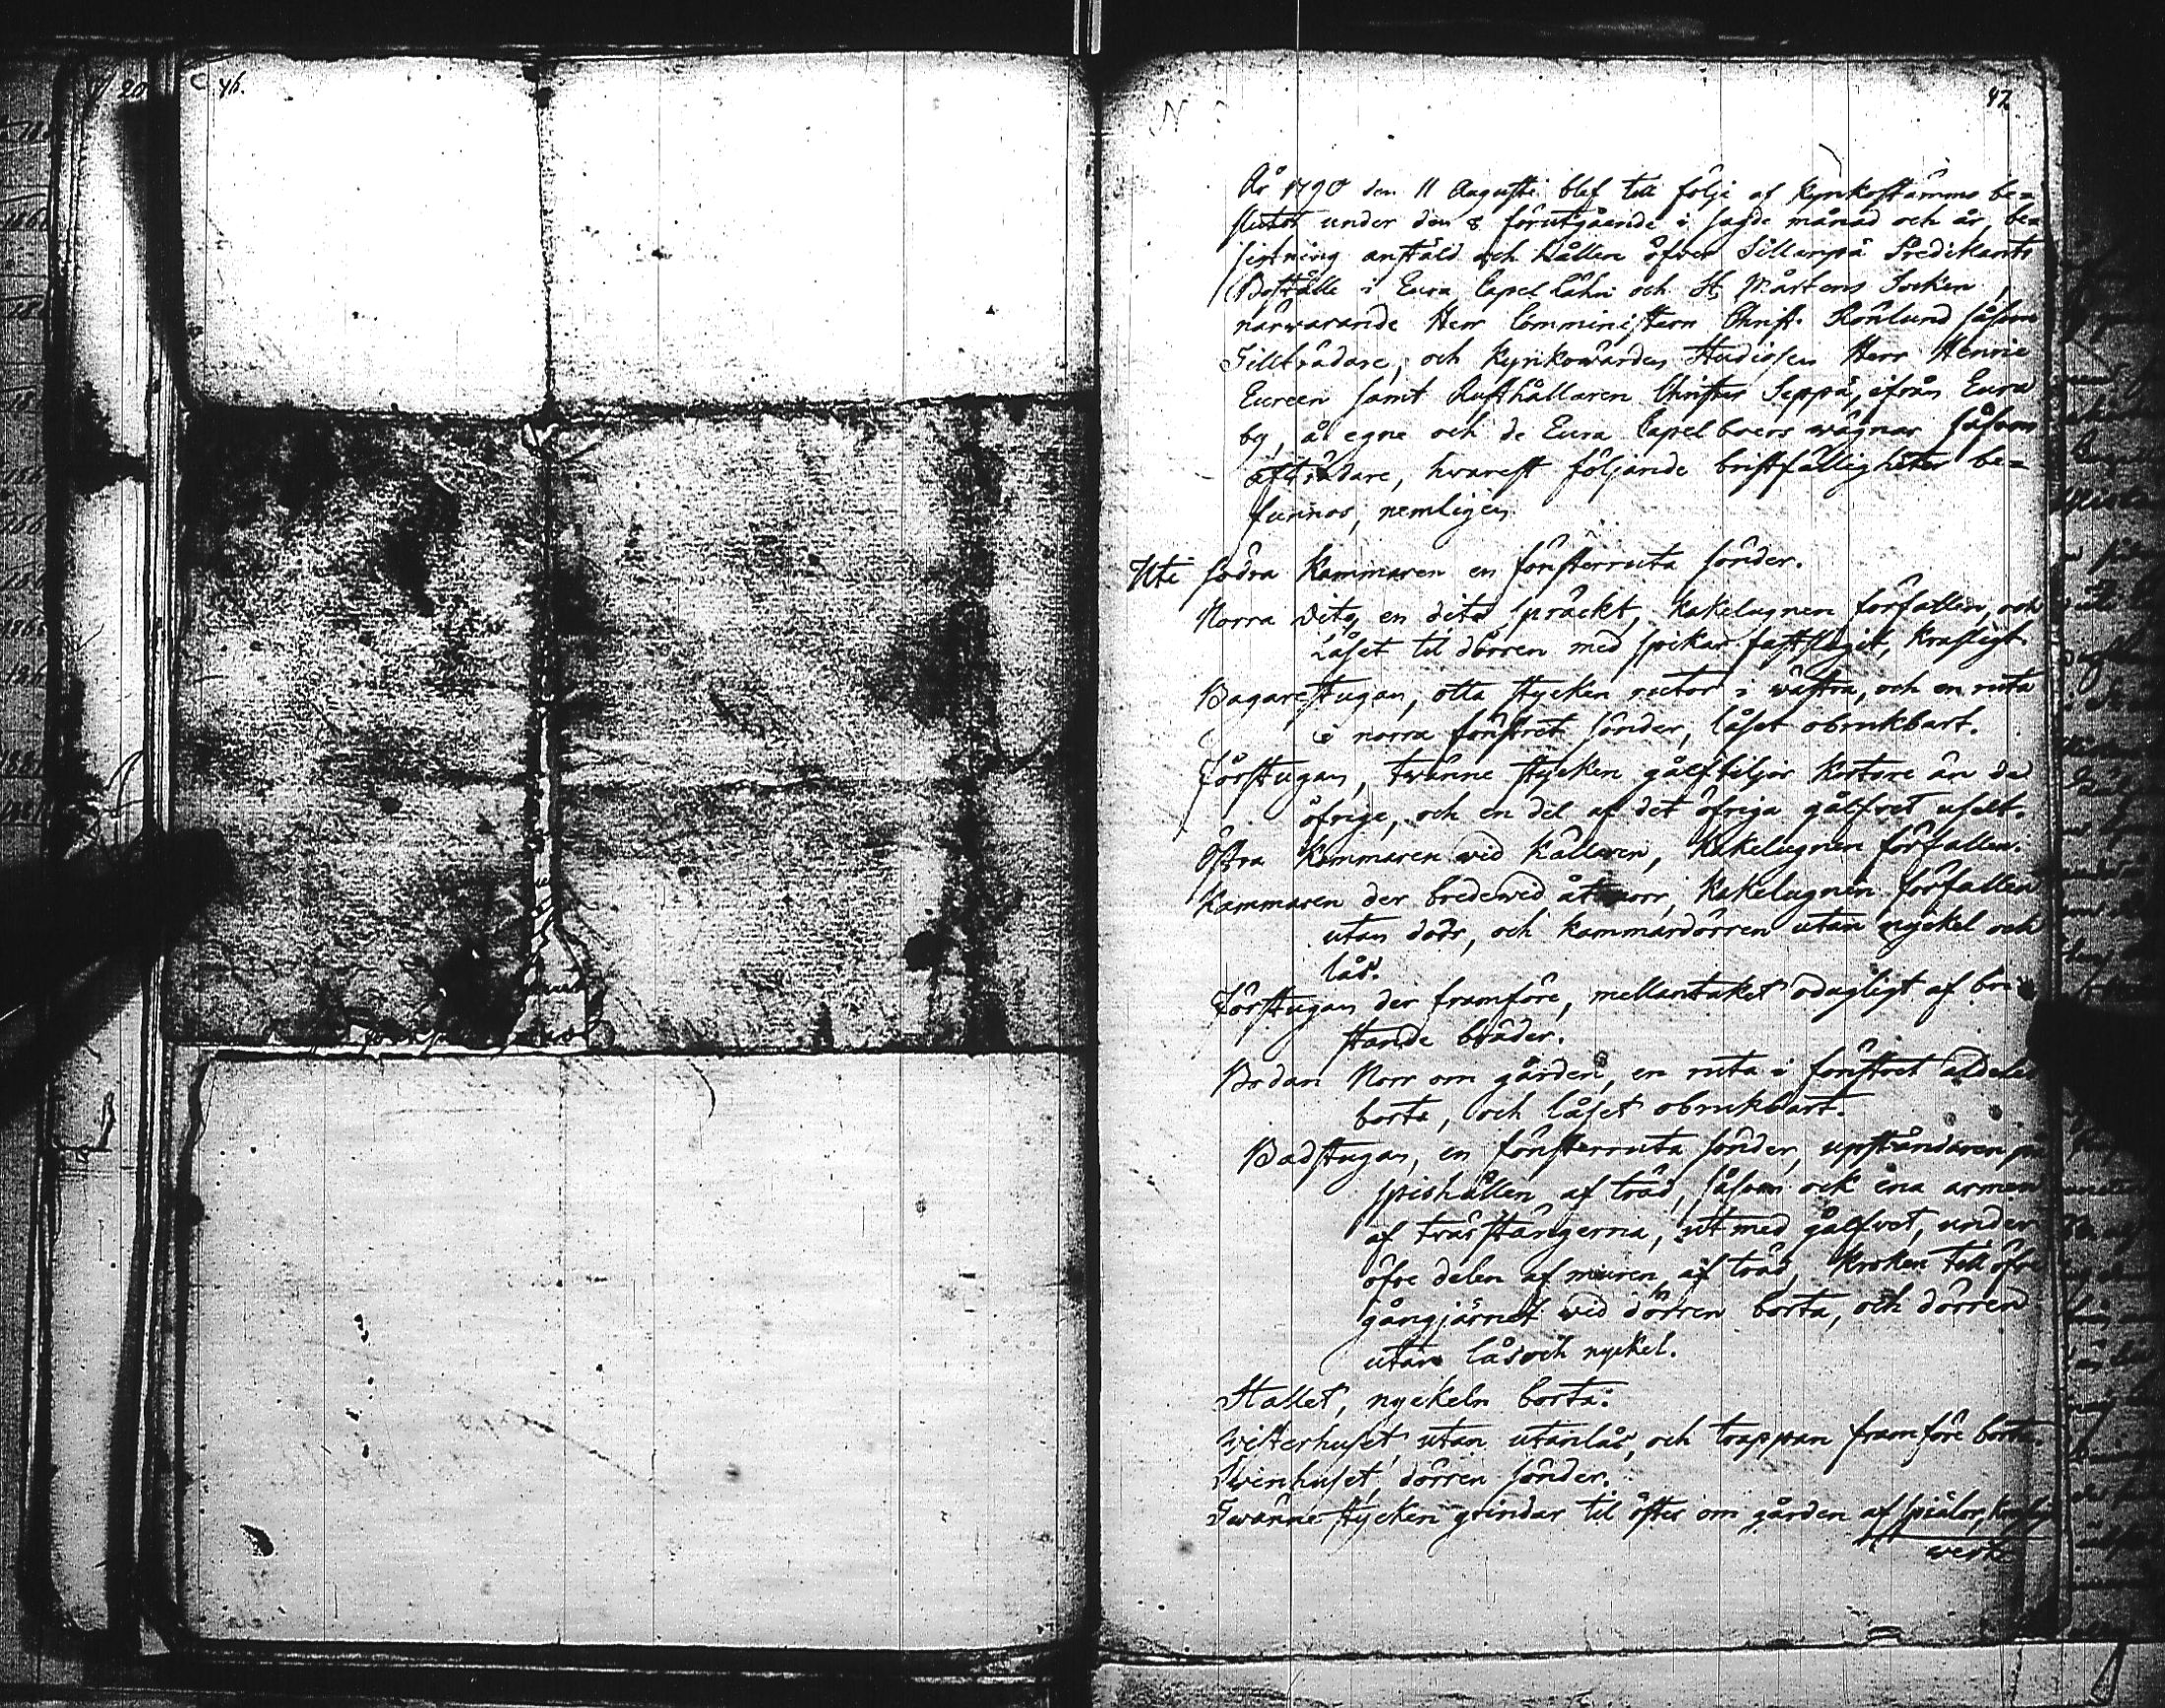 46.
47
År 1790 den 11 Augusti blef till följe af Kyrkostämmo be=
slutet under den 8 förutgående i sagde månad och år, be=
sigtning anstäld och hållen öfver Sillanpä Predikants
Boställe i Eura Capel Låhn och St Mårtens Socken,
närwarande Herr Comministern Christ. Rönlund såsom
Tillträdare, och Kyrkowärden Studiosen Herr Henric
Eureen samt Rusthållaren Christer Seppä, ifrån Eura
by, å egne och de Eura Capelboers wägnar såsom
afträdare, hwarest följande bristfälligheter be=
funnos, nemligen
Uti södra Kammaren en fönsterruta sönder.
Norra dito, en dito spräckt, Kakelugnen förfallen, och
Låset til dörren med spikar fastslagit, krasligt.
Bagarestugan, otta stycken rutor i wästra, och en ruta
i norra fönstret sönder, låset obrukbart.
Förstugan, twänne stycken gålftiljor kortare än de
öfrige, och en del af det öfriga gålfvet uselt.
Östra Kammaren wid Källaren, Kakelugnen förfallen.
Kammaren der bredewid åt norr, Kakelugnen förfallen
utan dörr, och kammardörren utan nyckel och
lås.
Förstugan der framföre, mellantaket odugligt af bri
stande bräder.
Bodan Norr om gården, en ruta i fönstret aldeles
borta, och låset obrukbart.
Badstugan, en fönsterruta sönder, uppståndaren på
spishällen af träd, såsom ock ena armen
af twärstängerna, ut med gålfvet, under
öfre delen af muren, af träd, Kroken till öfre
gångjärnet wid dörren borta, och dörren
utan lås och nyckel.
Stallet, nyckeln borta.
Wisterhuset, utan utanlås, och trappan framföre borta.
Swinhuset, dörren sönder.
Twänne stycken grindar til öster om gården af spiälor,
werk